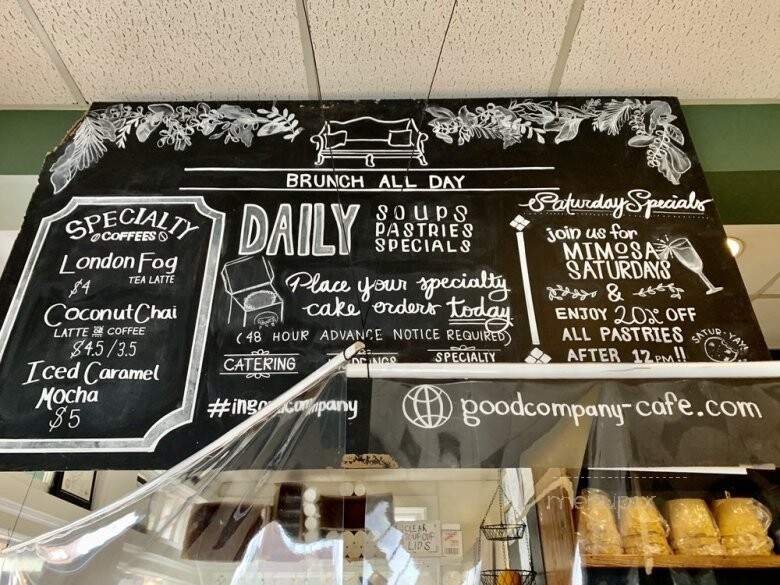 BRUNCH ALL DAY
SPECIALTY
COFFEES
London Fog
TEA LATTE
$4
Coconut Chai
LATTE OR COFFEE
$4.5/3.5
Iced Caramel
Mocha
$5
DAILY
SOUPS
PASTRIES
SPECIALS
Place your specialty
cake orders today.
(48 HOUR ADVANCE NOTICE REQUIRED)
CATERING
SPECIALTY
Saturday Specials
join us for
MIMOSA
SATURDAYS
&
ENJOY 20% OFF
ALL PASTRIES
AFTER 12PM!!
SATUR-YAY
goodcompany-cafe.com
CLEAR
LIDS
menupix